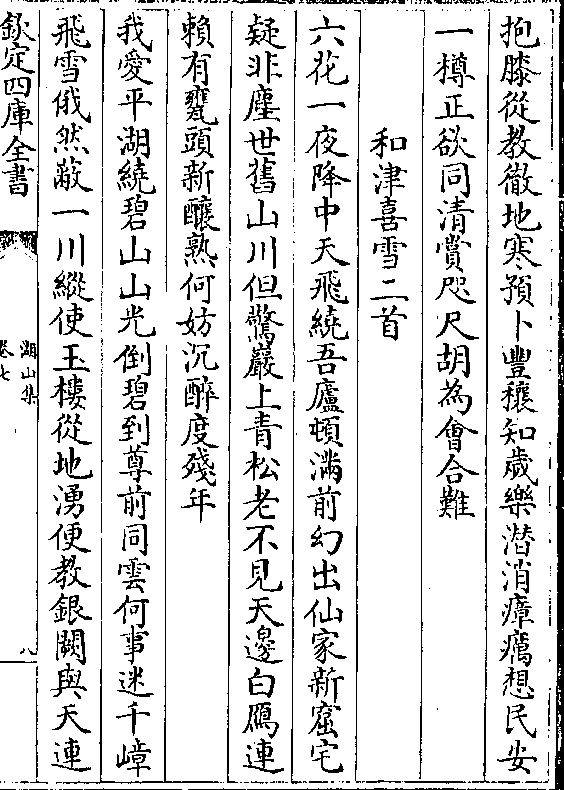 抱膝從教徹地寒預卜豐穰知歲樂潛消瘴癘想民安
一樽正欲同清賞咫尺胡為會合難
和津喜雪二首
六花一夜降中天飛繞吾廬頓滿前幻出仙家新窟宅
疑非塵世舊山川但驚巖上青松老不見天邊白鴈連
賴有甕頭新釀熟何妨沉醉度殘年
我愛平湖繞碧山山光倒碧到尊前同雲何事迷千嶂
飛雪俄然蔽一川縱使玉樓從地湧便教銀闕與天連
欽定四庫全書
湖山集
卷七
八